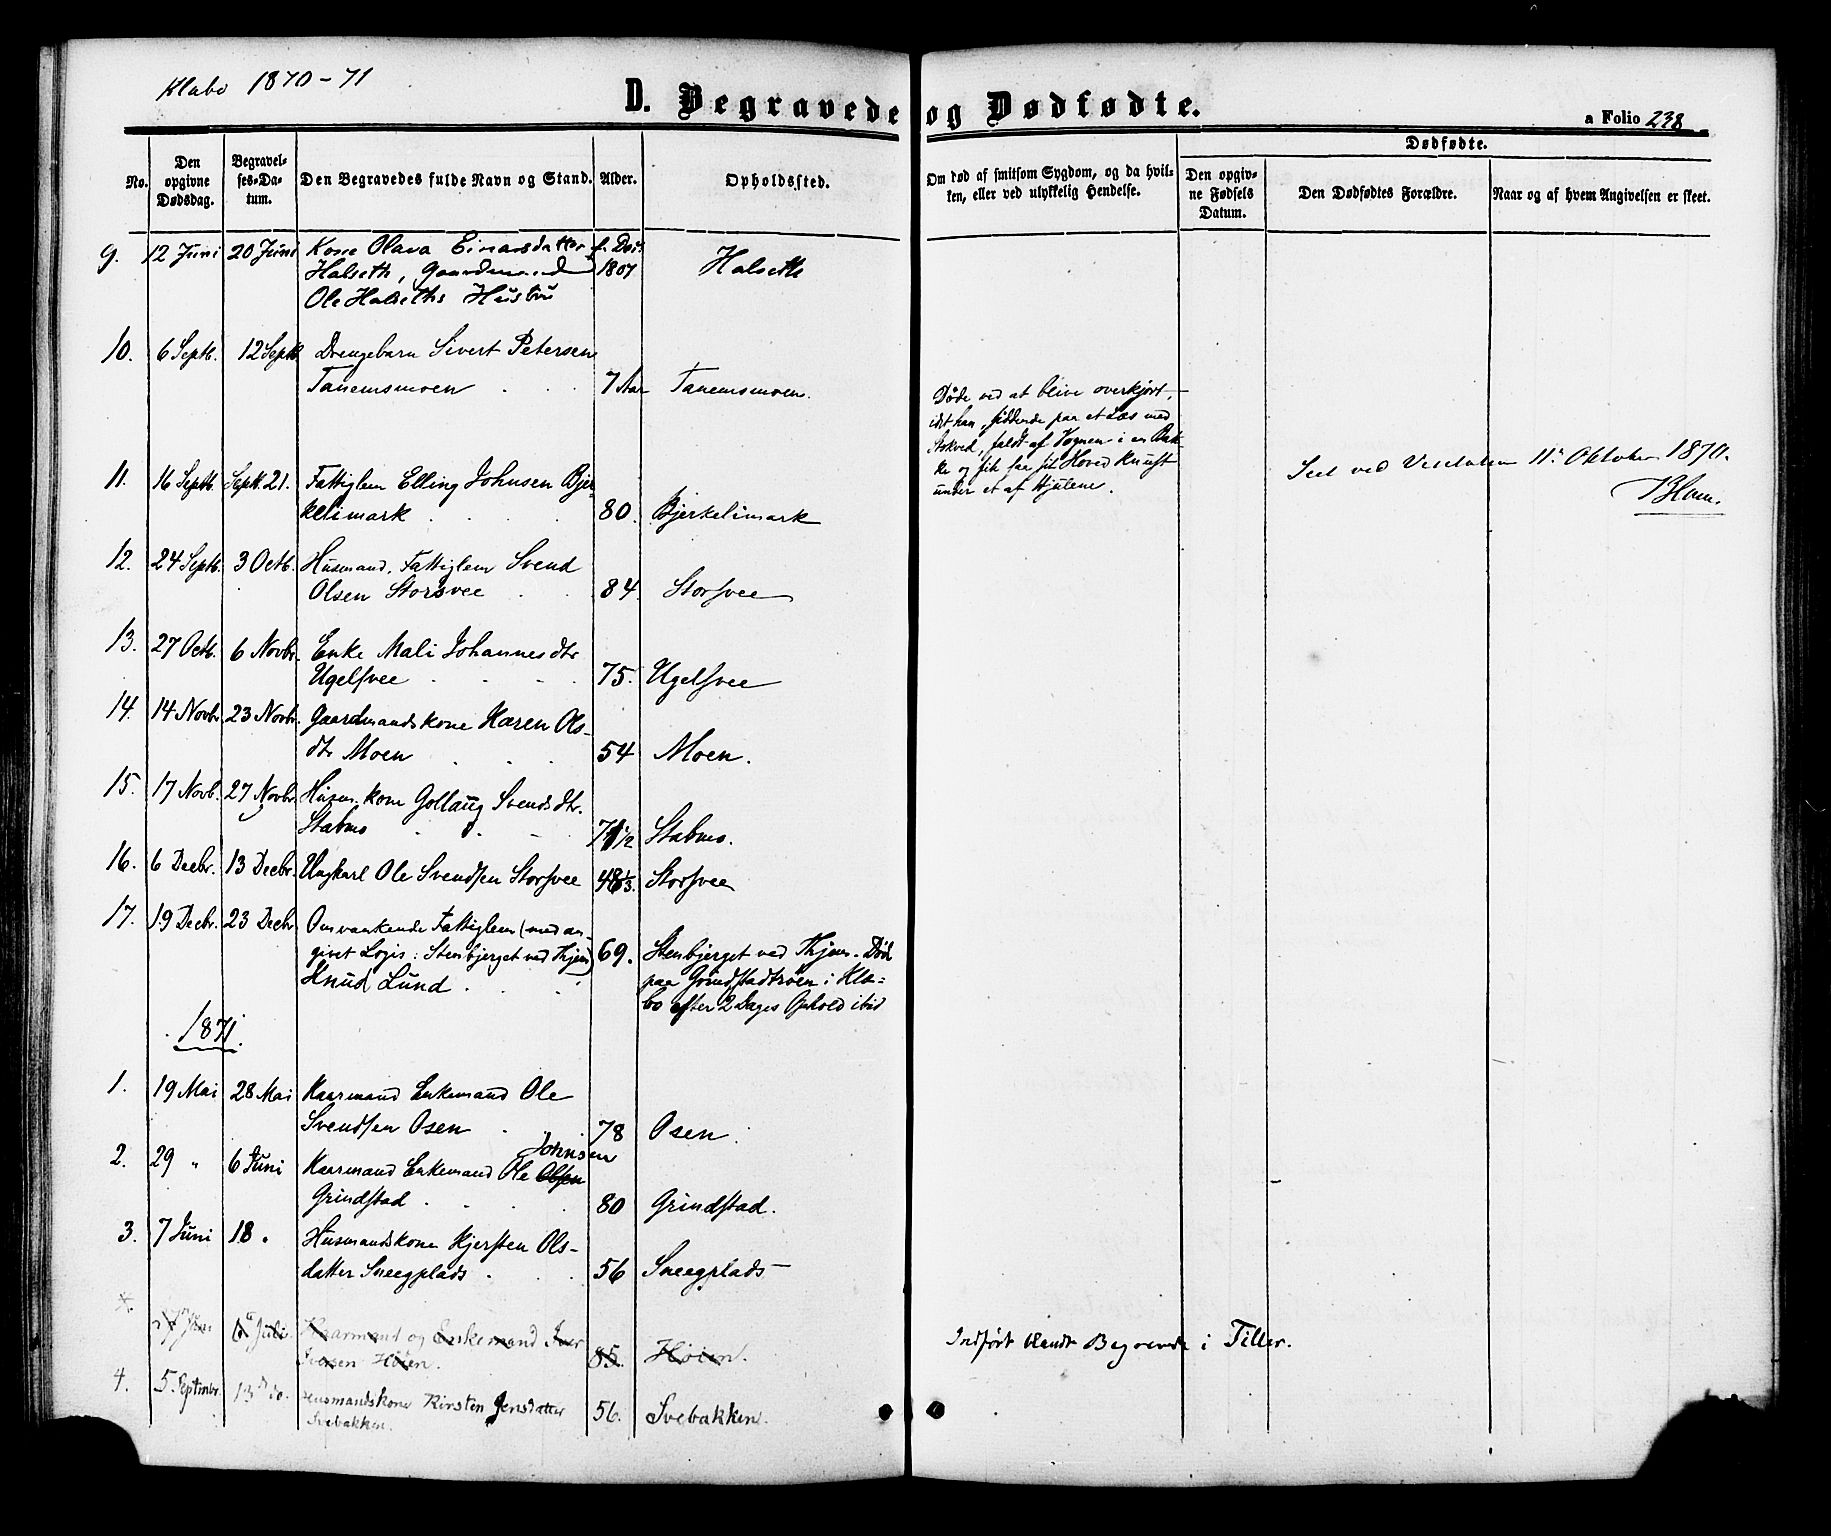 Klæbo 1870-71
D. Begravede og Dødfødte.
a Folio 238
No.
Den opgivne Dødsdag.
Begravelses-Datum.
Den Begravedes fulde Navn og Stand.
Alder.
Opholdssted.
Om død af smitsom Sygdom, og da hvilken, eller ved ulykkelig Hendelse.
Dødfødte.
Den opgivne Fødsels Datum.
Den Dødfødtes Forældre.
Naar og af hvem Angivelsen er skeet.
9. 12 Juni 20 Juni Kone Olava Einarsdatter f. Døs
Halseth, Gaardmand 1807 Halseth
Ole Halseths Hustru
10. 6 Septb. 12 Septb. Drengebarn Sivert Petersen
Tanemsmoen . . 7 Aar Tanemsmoen.
Døde ved at blive overkjørt,
idet han, siddende paa et Læs med
Stokved, faldt af Vognen i en Bak-
ke og fik saa sit Hoved knust
under et af Hjulene.
11. 16 Septb. Septb. 21. Fattiglem Elling Johnsen Bjer-
kelimark . . . 80. Bjerkelimark
Seet ved Visitatsen 11te Oktober 1870.
12. 24 Septb. 3 Octb. Husmand, Fattiglem Svend
Olsen Storsvee . . 84. Storsvee
13. 27 Octb. 6 Novbr. Enke Mali Johannesdtr
Ugelsvee . . . 75. Ugelsvee
14. 14 Novbr. 23 Novbr. Gaardmandskone Karen Ols-
dtr Moen . . . 54 Moen.
15. 17 Novb. 27 Novbr. Husm.kone Gollaug Svendsdtr.
Stabmo . . . 71 1/2 Stabmo.
16. 6 Decbr. 13 Decbr. Ungkarl Ole Svendsen Storsvee 48 1/3. Storsvee
17. 19 Decbr. 23 Decbr Omvankende Fattiglem (med an-
givet Logis: Stenbjerget ved Thjem) 69. Stenbjerget ved Thjem. Død
Knud Lund . . . paa Grindstadtrøen i Klæ-
bo efter 2 Dages Ophold ibid
1871.
1. 19 Mai 28 Mai Kaarmand Enkemand Ole
Svendsen Osen . 78 Osen.
2. 29 " 6 Juni Kaarmand Enkemand Ole Olsen Johnsen
Grindstad . . . 80 Grindstad.
3. 7 Juni 18 " Husmandskone Kjersten Ols-
datter Sneegplads . . 56 Sneegplads
27 Juni 6te Juli. Kaarmand og Enkemand Iver
Iversen Høien. 85. Høien.
Indført blandt Begravede i Tiller.
4. 5. Septmbr. 13de do. Husmandskone Kirsten Jensdatter
Svebakken. 56. Svebakken.